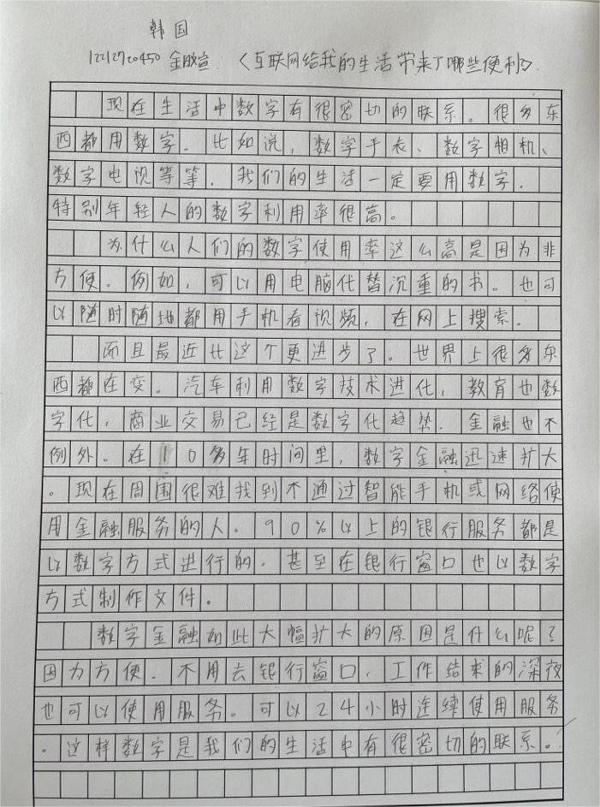 韩国
《互联网给我的生活带来了哪些便利》
现在生活中数字有很密切的联系。很多东
西都用数字。比如说，数字手表、数字相机、
数字电视等等。我们的生活一定要用数字。
特别年轻人的数字利用率很高。
为什么人们的数字使用率这么高是因为非
方便。例如，可以用电脑代替沉重的书。也可
以随时随地都用手机看视频，在网上搜索。
而且最近比这个更进步了。世界上很多东
西都在变。汽车利用数字技术进化，教育也数
字化，商业交易已经是数字化趋势。金融也不
例外。在10多年时间里，数字金融迅速扩大
。现在周围很难找到不通过智能手机或网络使
用金融服务的人。90%以上的银行服务都是
以数字方式进行的。甚至在银行窗口也以数字
方式制作文件。
数字金融如此大幅扩大的原因是什么呢？
因为方便。不用去银行窗口，工作结束的深夜
也可以使用服务。可以24小时连续使用服务
。这样数字是我们的生活中有很密切的联系。